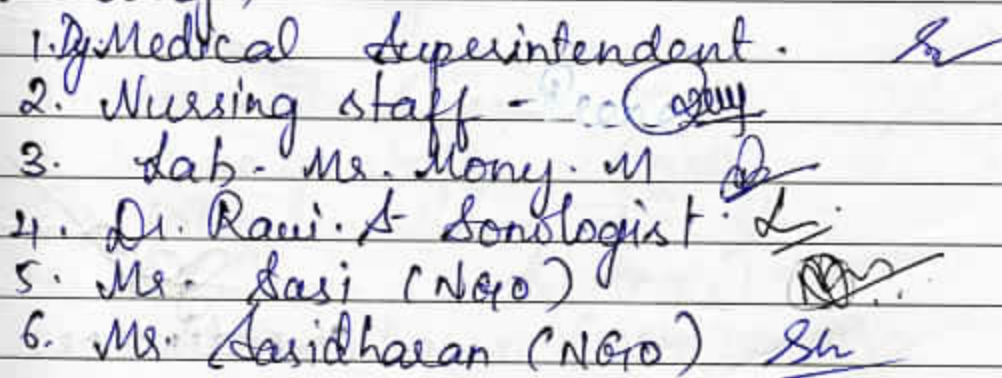 1. Dy. Medical Superintendent.
2. Nursing staff -
3. Lab - Mr. Mony. M
4. Dr. Ravi. S Sonologist.
5. Mr. Sasi (NGO)
6. Mr. Sasidharan (NGO)